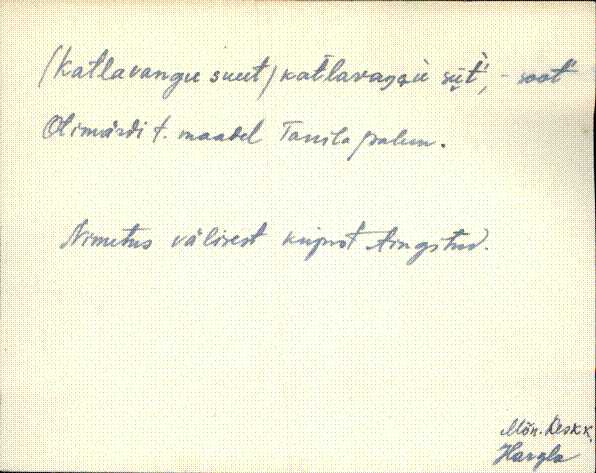 (Katlavangu suut) katlavaŋgu sūt', -soot'
Otimärdi t. maadel Tanila palun.
Nimetus välisest kujust tingitud.
Mõn. Keskk.
Hargla